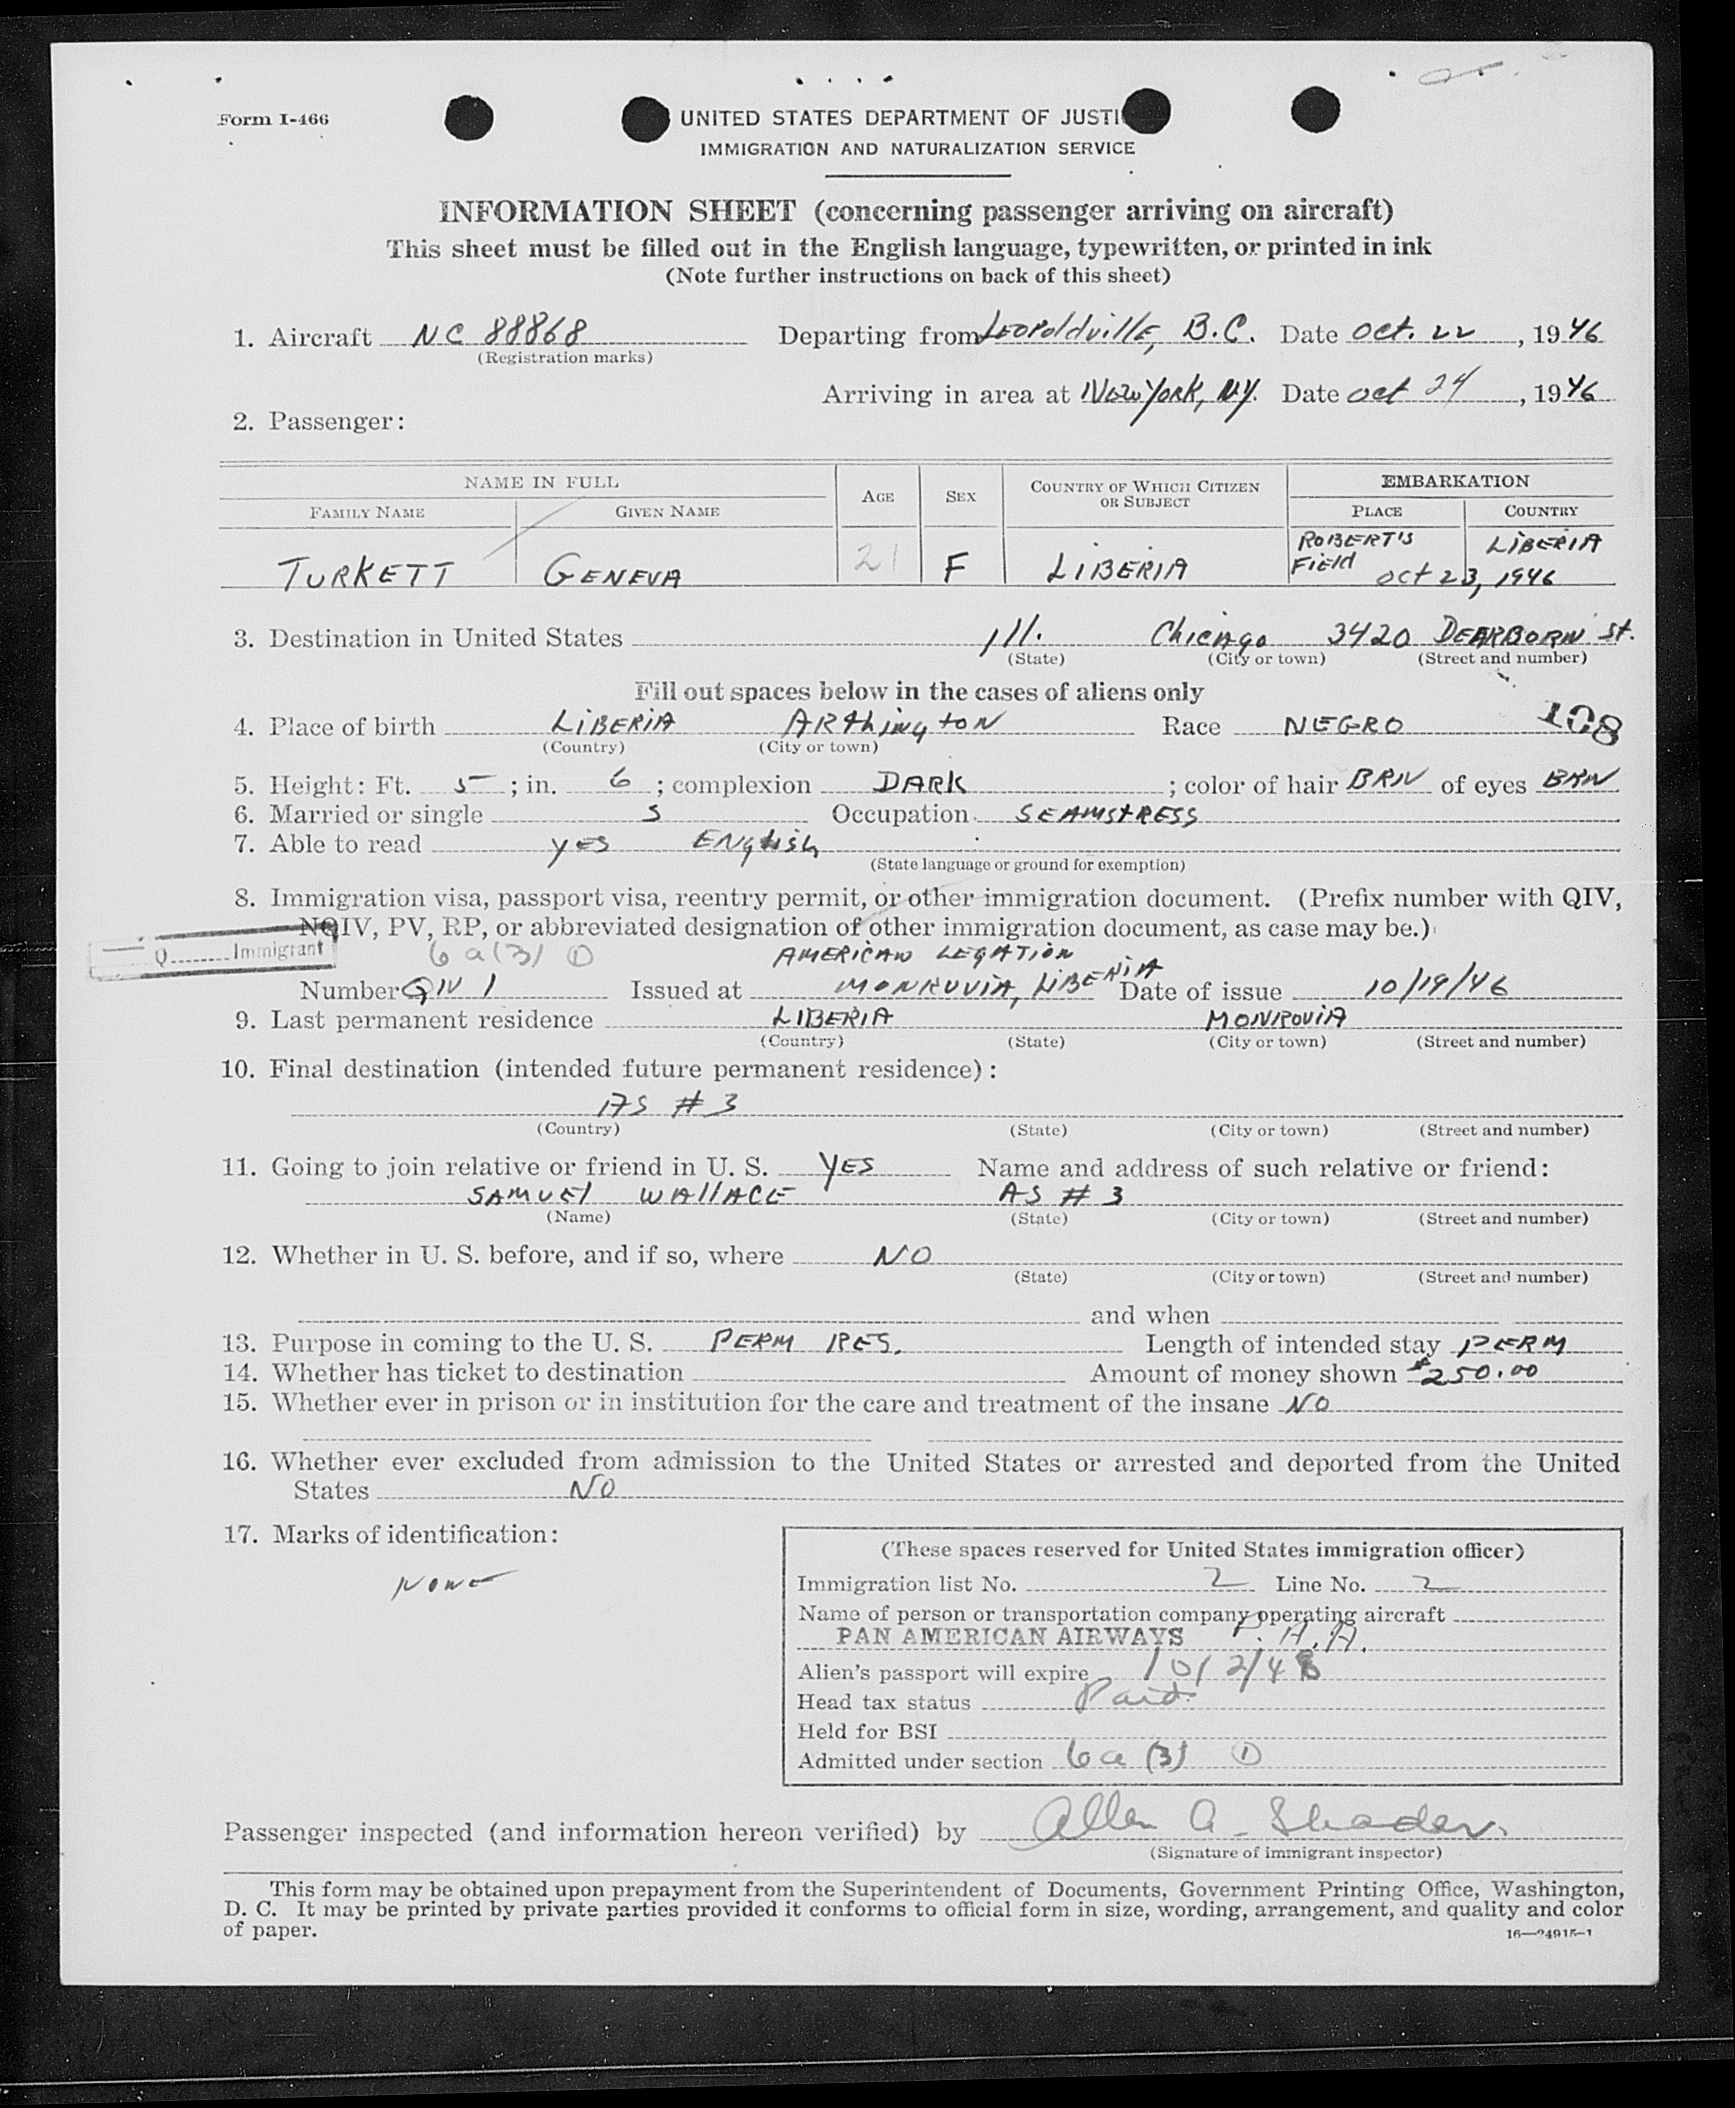 Form I-466
UNITED STATES DEPARTMENT OF JUSTI
IMMIGRATION AND NATURALIZATION SERVICE
INFORMATION SHEET (concerning passenger arriving on aircraft)
This sheet must be filled out in the English language, typewritten, or printed in ink
(Note further instructions on back of this sheet)
1. Aircraft NC 88868 Departing from Leopoldville, B.C. Date Oct. 22, 1946
(Registration marks)
Arriving in area at New York, N.Y. Date Oct 24, 1946
2. Passenger:
NAME IN FULL AGE SEX COUNTRY OF WHICH CITIZEN OR SUBJECT EMBARKATION
FAMILY NAME GIVEN NAME PLACE COUNTRY
TURKETT GENEVA 21 F LIBERIA ROBERT'S FIELD LIBERIA
Oct 23, 1946
3. Destination in United States Ill. Chicago 3420 DEARBORN St.
(State) (City or town) (Street and number)
Fill out spaces below in the cases of aliens only
4. Place of birth LIBERIA ARThington Race NEGRO 108
(Country) (City or town)
5. Height: Ft. 5; in. 6; complexion DARK; color of hair BRN of eyes BRN
6. Married or single S Occupation SEAMSTRESS
7. Able to read yES ENglish
(State language or ground for exemption)
8. Immigration visa, passport visa, reentry permit, or other immigration document. (Prefix number with QIV,
NQIV, PV, RP, or abbreviated designation of other immigration document, as case may be.)
Q Immigrant 6a(3) ① AMERICAN LEGATION
Number QIV 1 Issued at MONRUVIA, LIBERIA Date of issue 10/19/46
9. Last permanent residence LIBERIA MONROVIA
(Country) (State) (City or town) (Street and number)
10. Final destination (intended future permanent residence):
AS #3
(Country) (State) (City or town) (Street and number)
11. Going to join relative or friend in U. S. YES Name and address of such relative or friend:
SAMUEL WALLACE AS #3
(Name) (State) (City or town) (Street and number)
12. Whether in U. S. before, and if so, where NO
(State) (City or town) (Street and number)
and when
13. Purpose in coming to the U. S. PERM RES. Length of intended stay PERM
14. Whether has ticket to destination Amount of money shown $250.00
15. Whether ever in prison or in institution for the care and treatment of the insane NO
16. Whether ever excluded from admission to the United States or arrested and deported from the United
States NO
17. Marks of identification:
NONE
(These spaces reserved for United States immigration officer)
Immigration list No. 2 Line No. 2
Name of person or transportation company operating aircraft
PAN AMERICAN AIRWAYS P.A.A.
Alien's passport will expire 10/2/48
Head tax status Paid
Held for BSI
Admitted under section 6a(3) ①
Passenger inspected (and information hereon verified) by Allen A. Shader
(Signature of immigrant inspector)
This form may be obtained upon prepayment from the Superintendent of Documents, Government Printing Office, Washington,
D. C. It may be printed by private parties provided it conforms to official form in size, wording, arrangement, and quality and color
of paper.
16—24915-1